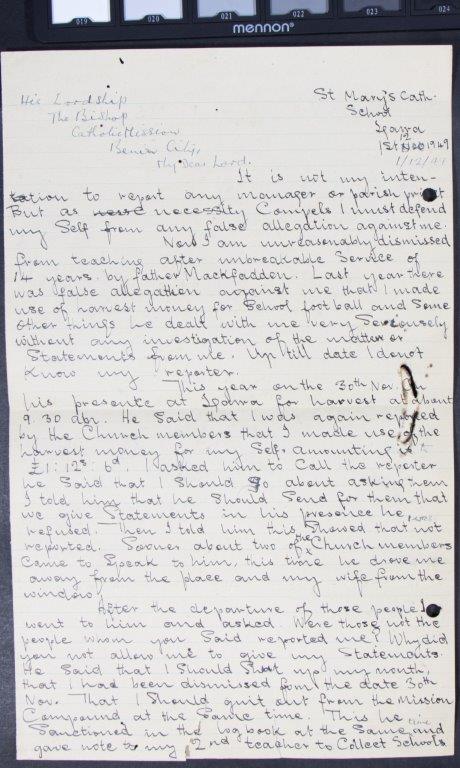 019 020 021 022 023 024
mennon
St Mary's Cath.
School
Igarra
His Lordship
The Bishop
Catholic Mission
Benin City,
1st 12 1949
1/12/49
My Dear Lord.
It is not my inten-
tation to report any manager or parish priest
But as necessity Compels I must defend
my Self from any false allegation against me.
Now I am unreasonably dismissed
from teaching after unbreakable Service of
14 years. by father Mackfadden. Last year there
was false allegation against me that I made
use of harvest money for School football and Some
other things he dealt with me very Seriously
without any investigation of the matter or
Statements from me. Up till date I donot
Know my reporter.
This year on the 30th Nov. in
his presence at Igarra for harvest at about
9.30 am. He Said that I was again reported
by the Church members that I made use of the
harvest money for my Self amounting to
£1: 12s: 6d. I asked him to Call the reporter
he Said that I Should go about asking them
I told him that he Should Send for them that
we give Statements in his presence he
refused. Then I told him this Showed that not
reported. Sooner about two of the Church members
Came to Speak to him, this time he drove me
away from the place and my wife from the
window.
After the departure of those people I
went to him and asked. Were those not the
people whom you Said reported me? Why did
you not allow me to give my Statements.
He Said that I Should Shut up my mouth,
that I had been dismissed from the date 30th
Nov. That I Should quit out from the Mission
Compound at the Same time. This he
Sanctioned in the logbook at the Same time and
gave note to my 2nd teacher to Collect Schools